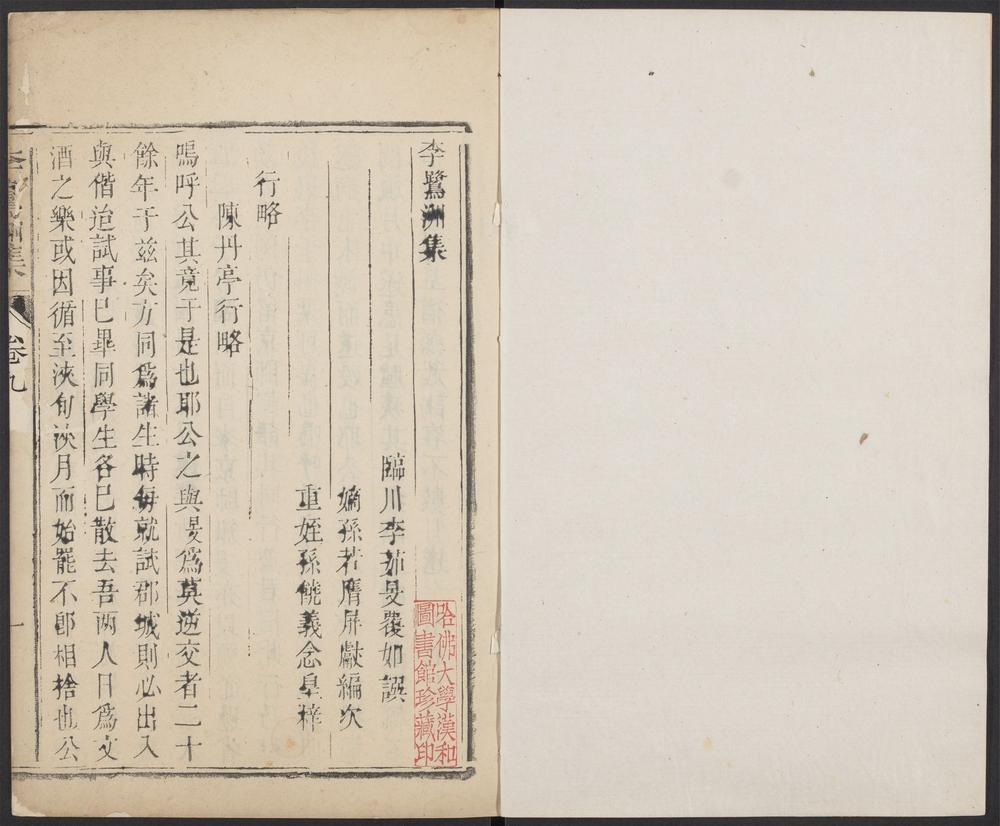 李鷺洲集
臨川李茹旻覆如譔
嫡孫若膺屏獻編次
重姪孫饒義念皐梓
行略
陳丹亭行略
嗚呼公其竟于是也耶公之與旻爲莫逆交者二十
餘年于兹矣方同爲諸生時每就試郡城則必出入
與偕迨試事巳畢同學生各巳散去吾两人日爲文
酒之樂或因循至浹旬浹月而始罷不卽相捨也公
李鷺洲集
卷九
一
哈佛大學漢和
圖書館珍藏印